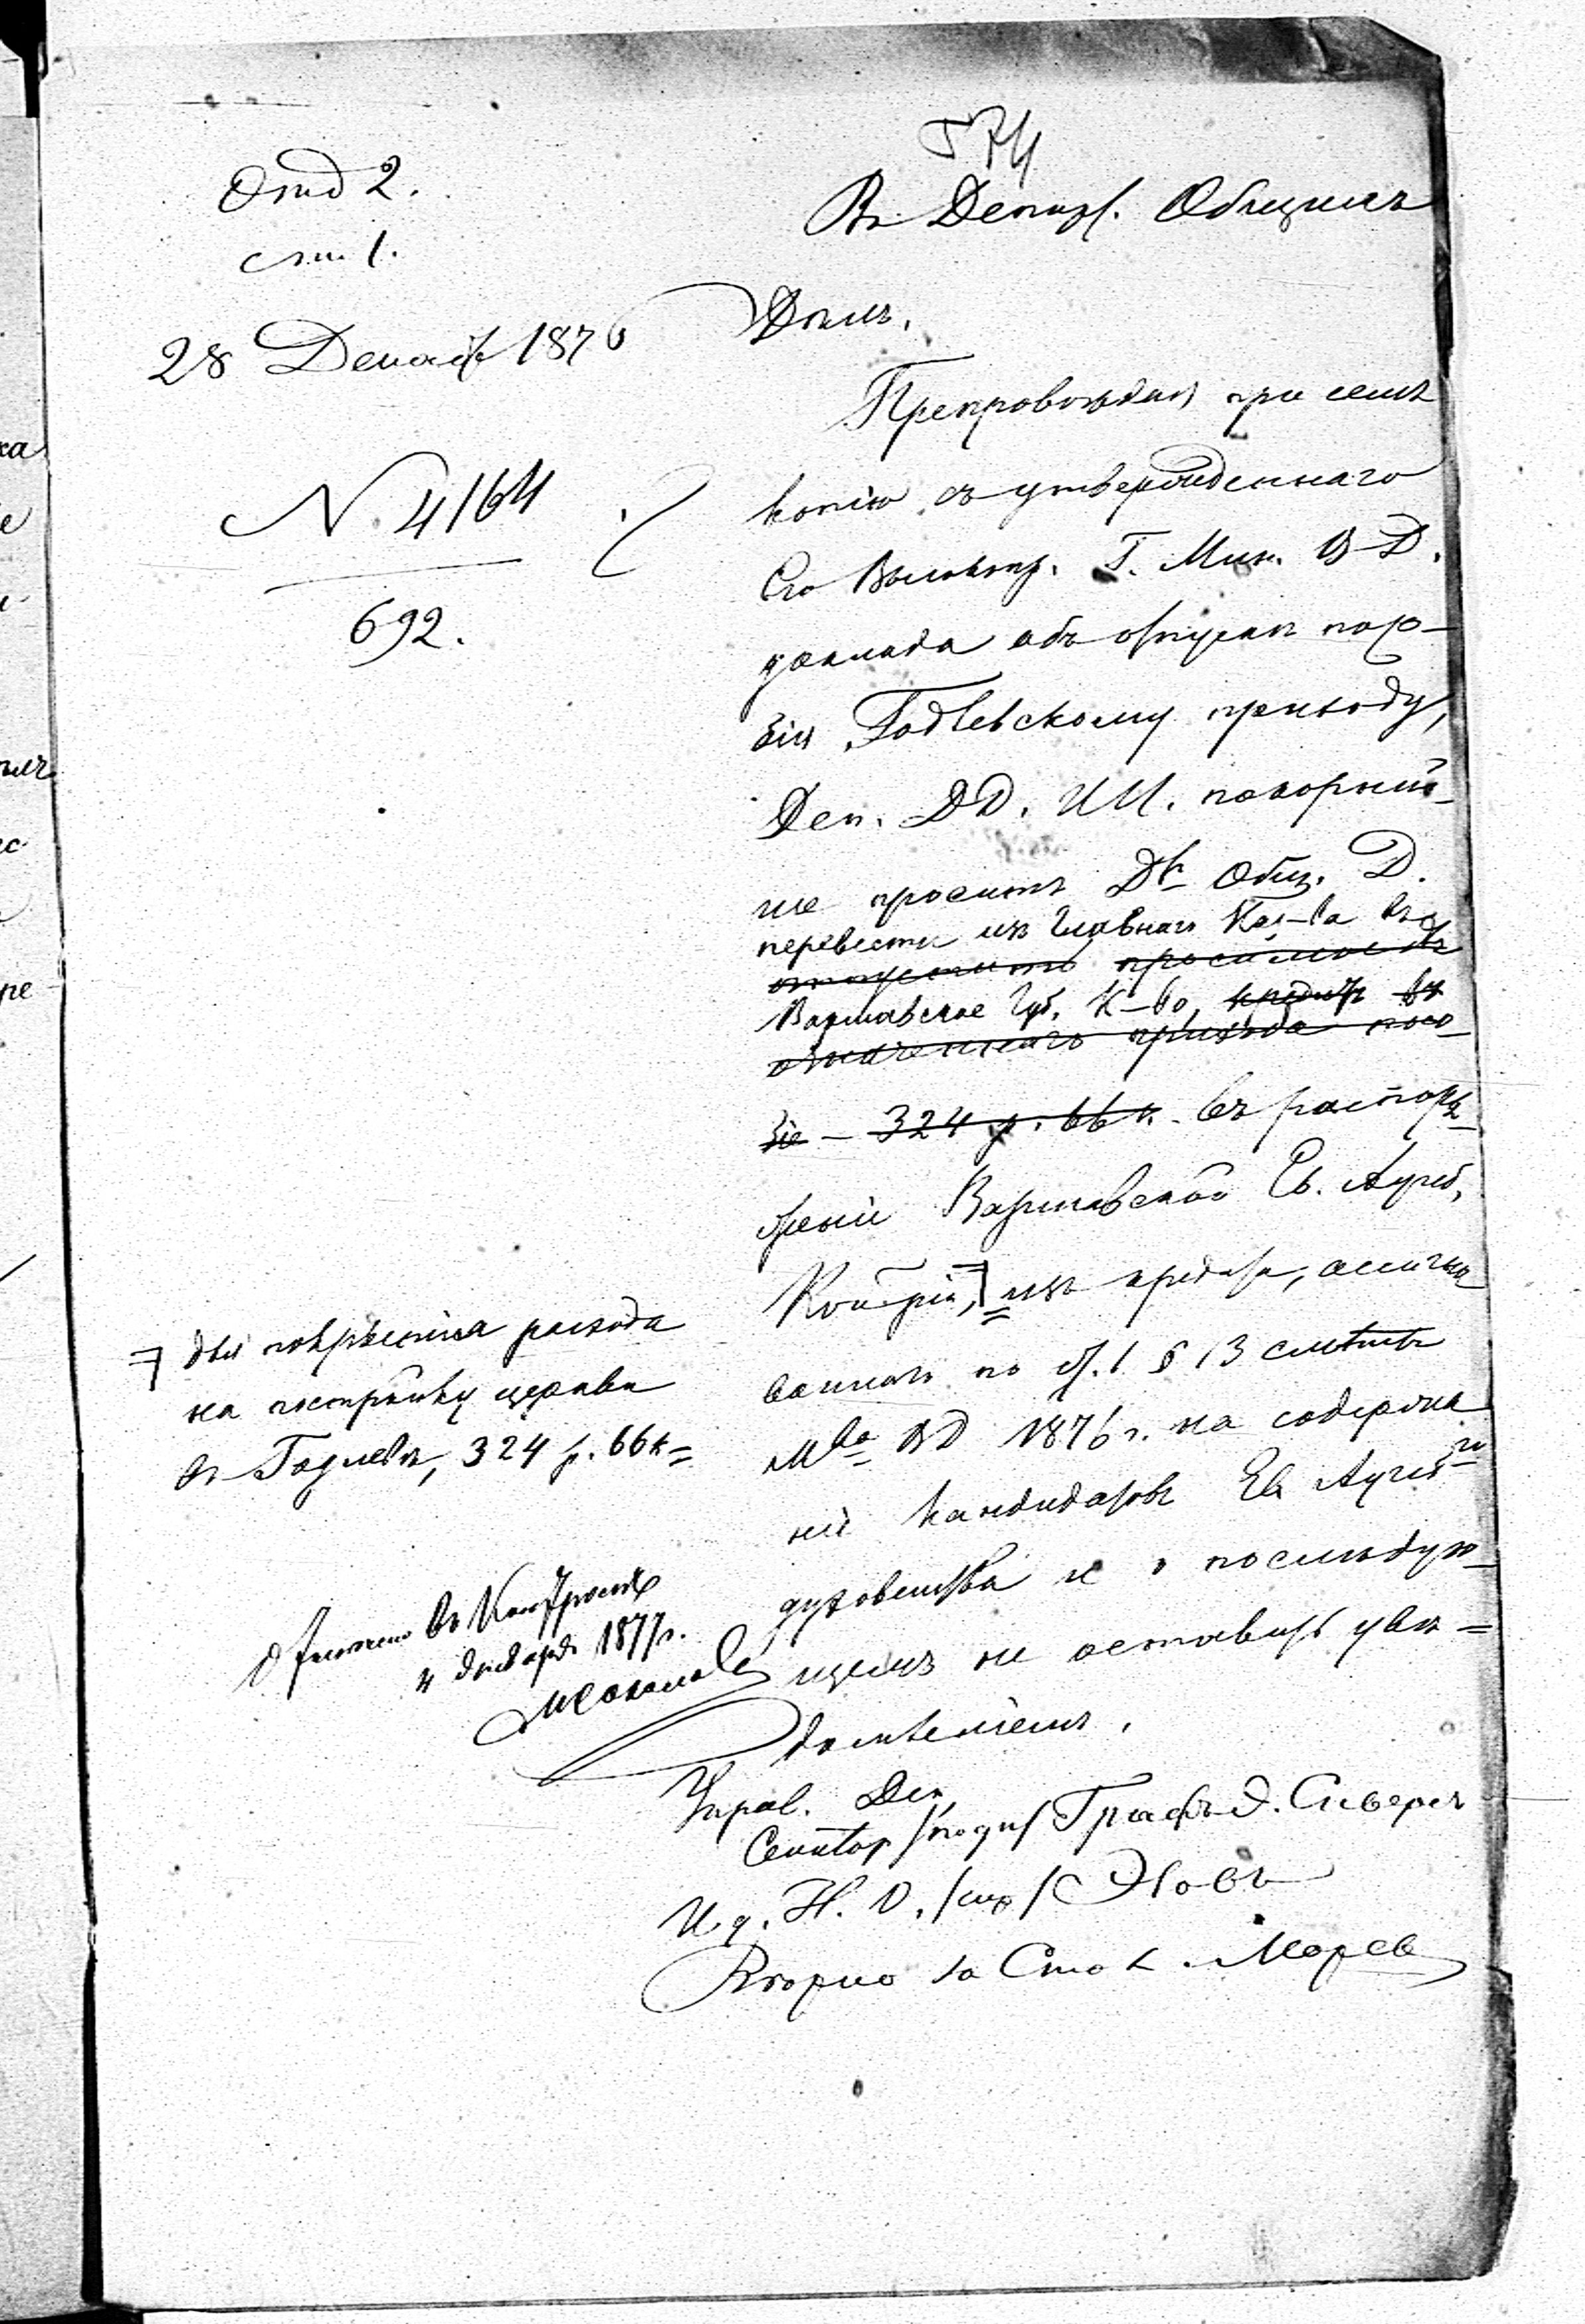 Отд 2.
ст 1.
28 Декаб 1876
N. 4164
692.
574
Въ Депар. Общихъ
Дѣлъ.
Препровождая при семъ
копію съ утвержденнаго
Его Высокопр. Г. Мин. В. Д.
доклада объ отпускѣ посо-
бія Годлевскому приходу,
Деп. ДД. ИИ. покорнѣй-
ше проситъ Дт Общ. Д.
перевести изъ Главнаго Каз-ва въ
отпустить
Варшавское Губ. К-во, кредитъ въ
означеннаго прихода посо-
біе - 324 р. 66 к. въ распоря-
женіе Варшавской Ев. Аугсб.
Консрій, изъ кредита, ассигно
ваннаго по ст. 1 § 13 смѣты
Мва ВД 1876 г. на содержа
ніе кандидатовъ Ев Аугсб го
духовенства и о послѣдую-
щемъ не оставить увѣ=
домленіемъ.
для покрытія расхода
на постройку церкви
въ Годлевѣ, 324 р. 66 к=
Отмѣчено въ Контролѣ
4 Января 1877 г.
Управ. Деп.
Сенаторъ /подп/ Графъ Э. Сиверсъ
И. д. Н. О. /скр/
Вѣрно за Стол.